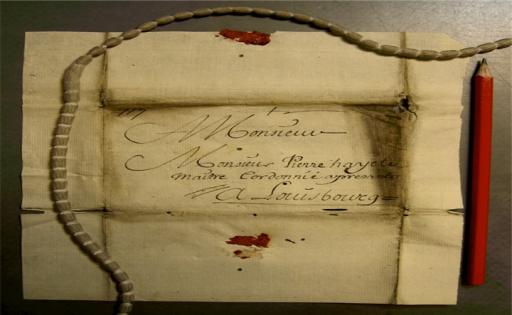 A Monsieur
Monsieur Pierre hayet
maitre Cordonnié apresent
A Louisbourg